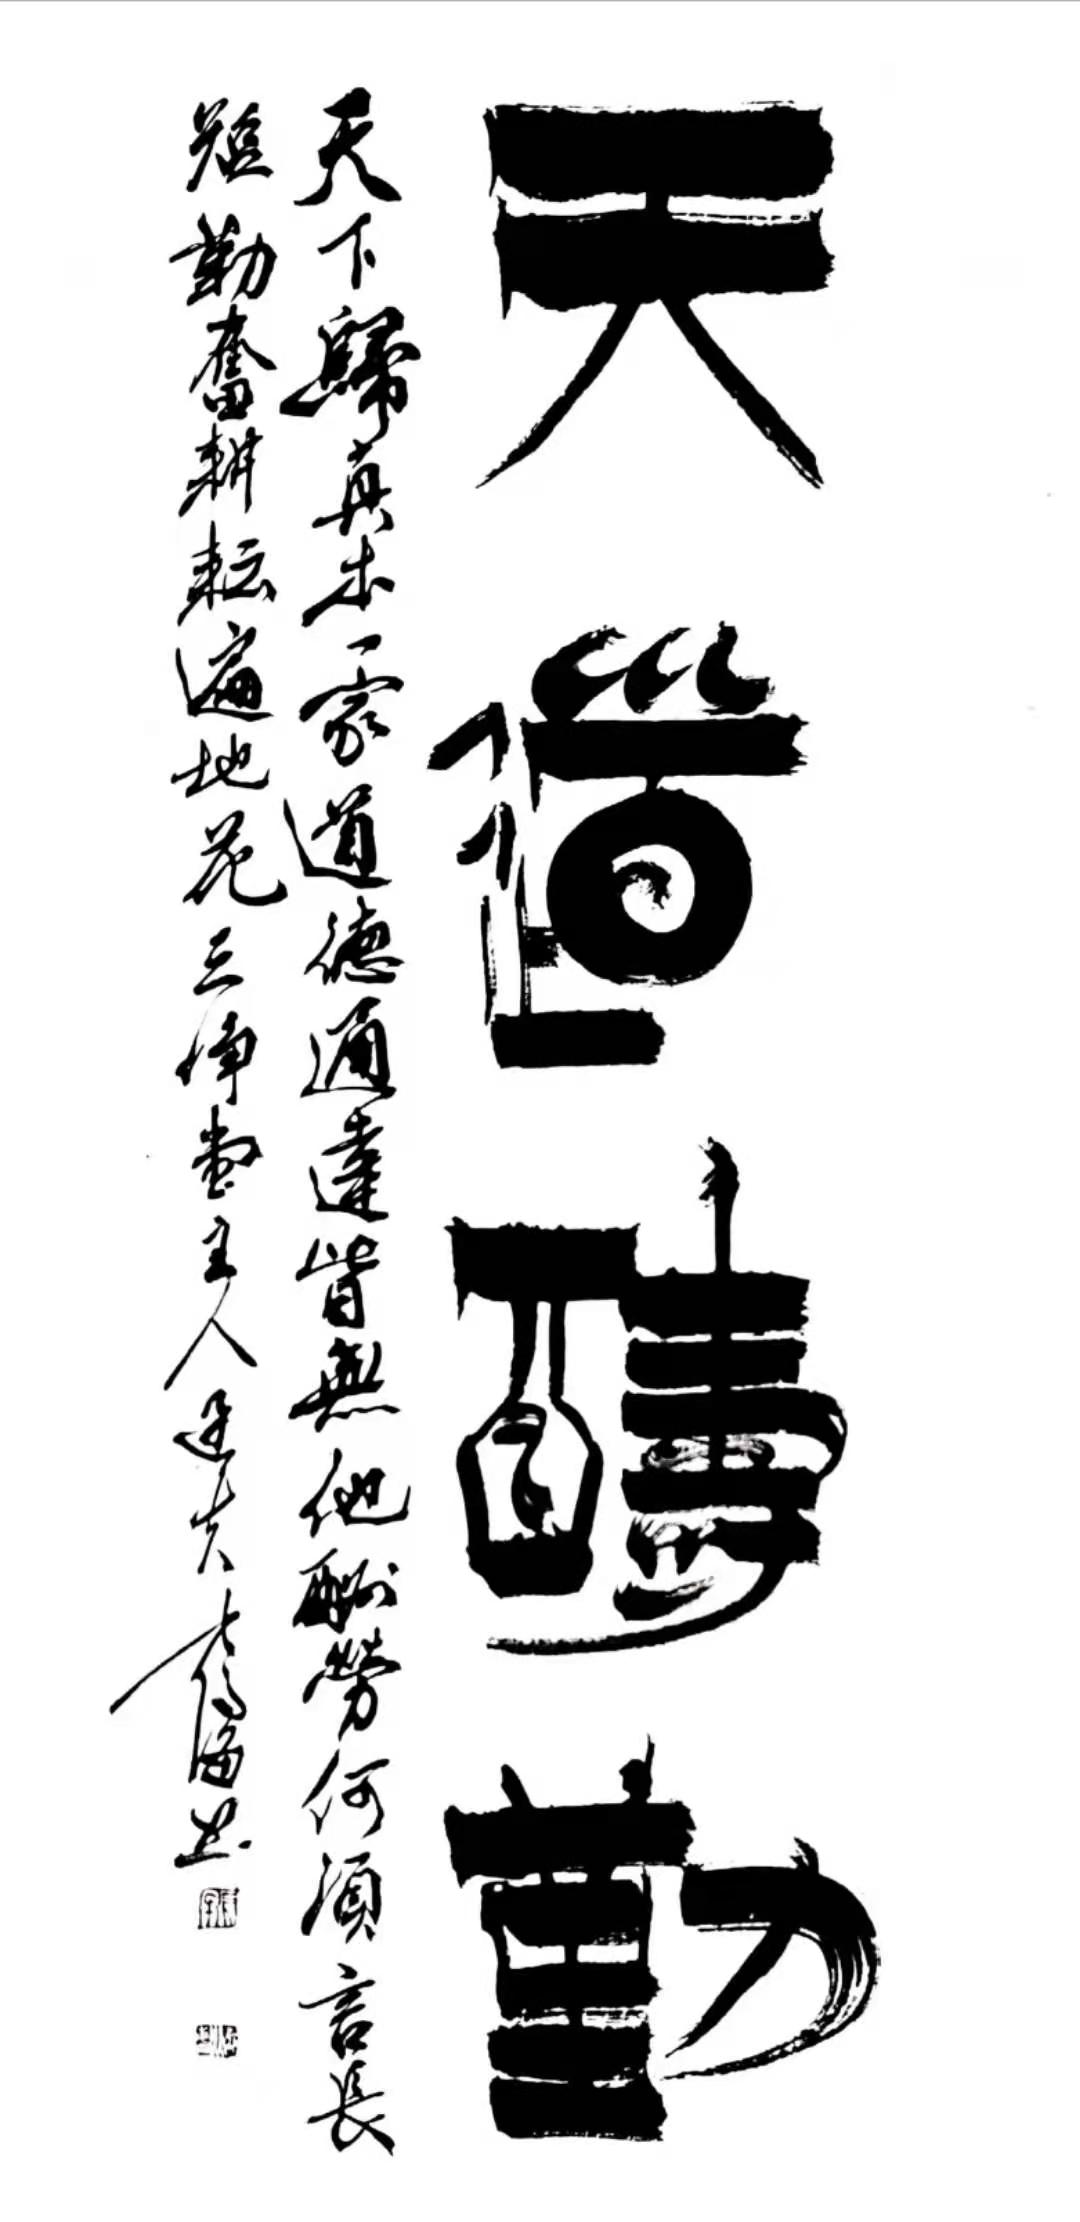 天道酬勤
天下歸真本一家道德通達皆無他酬勞何須言長
短勤奮耕耘遍地花三淨堂主人